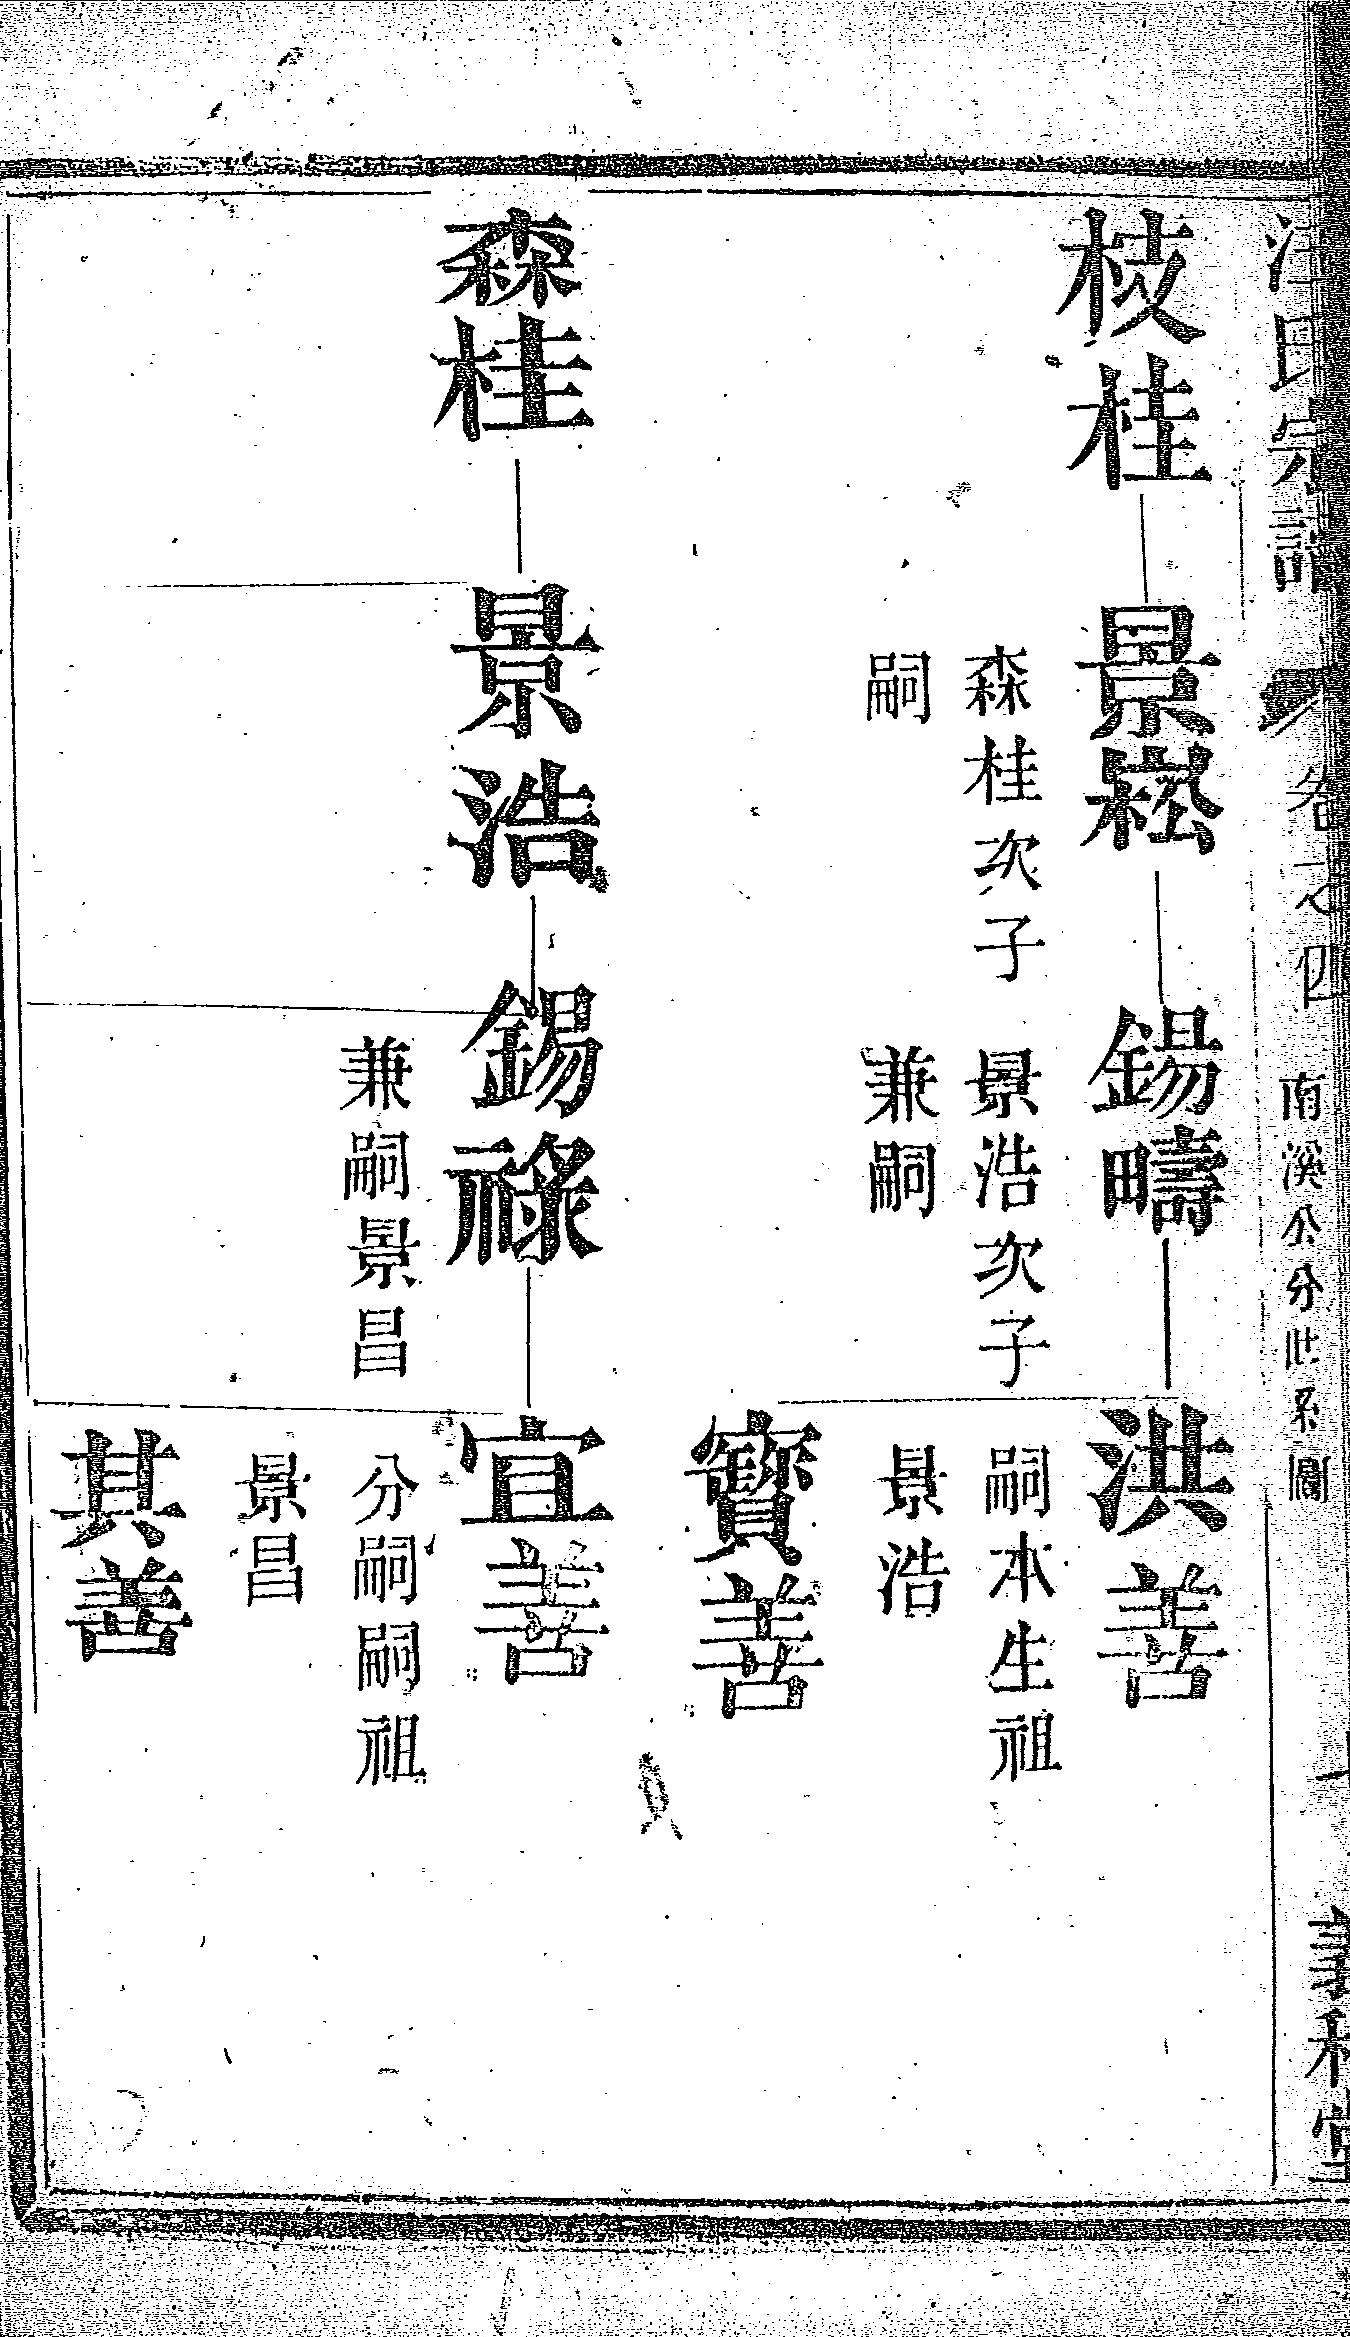 汪氏宗譜
卷之四
南溪公分世系圖
枝桂
景崧
森桂次子
嗣
錫疇
景浩次子
兼嗣
洪善
嗣本生祖
景浩
寶善
森桂
景浩
錫祿
兼嗣景昌
宜善
分嗣嗣祖
景昌
其善